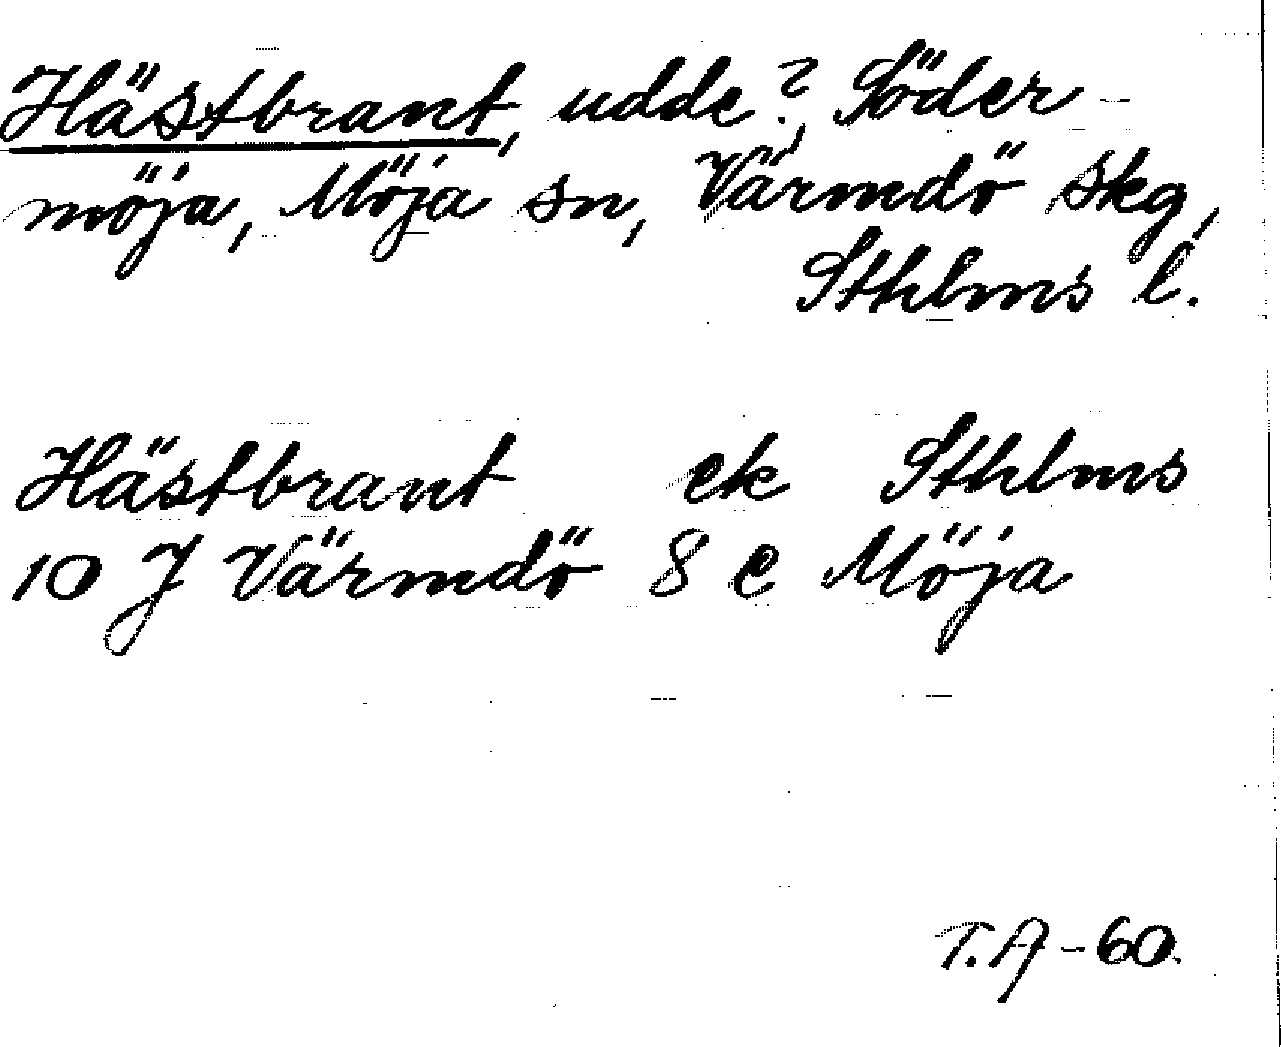 Hästbrant, udde?, Söder-
möja, Möja sn, Värmdö skg,
Sthlms l.
Hästbrant ek Sthlms
10 J Värmdö 8 e Möja
T.A-60